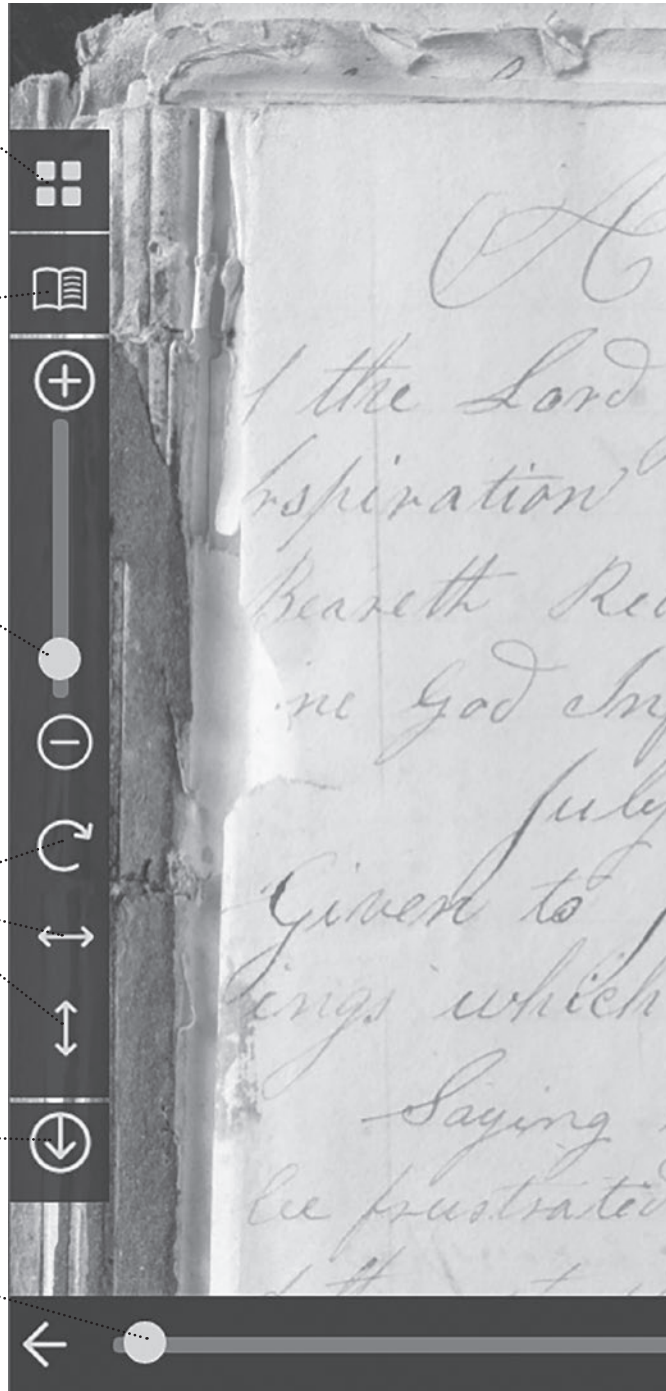 A
the Lord
nspiration
Beareth Rec
God
July
Given to
ings which
Saying
be frustrated